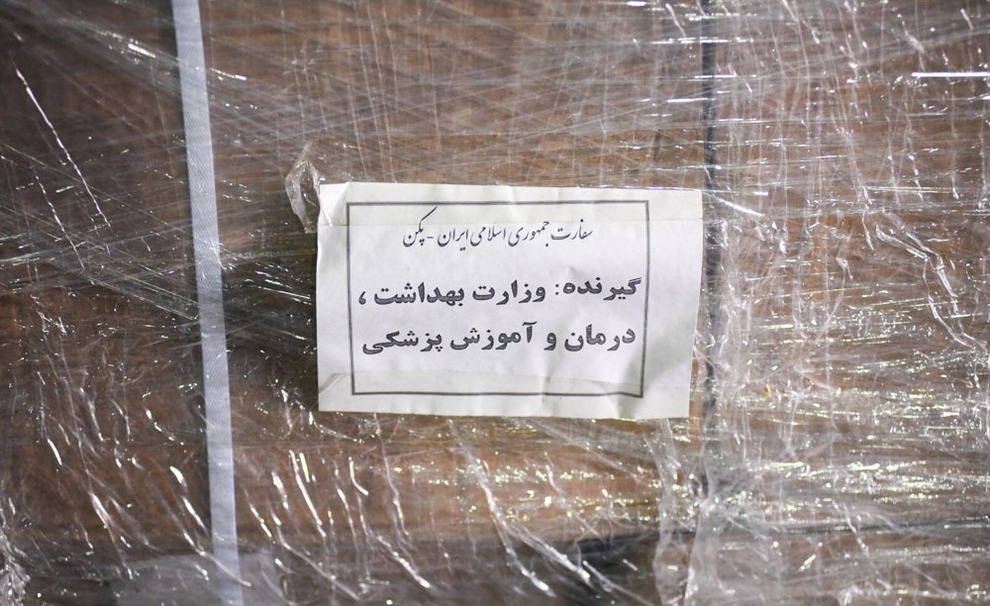 سفارت جمهوری اسلامی ایران - پکن
گیرنده: وزارت بهداشت ،
درمان و آموزش پزشکی